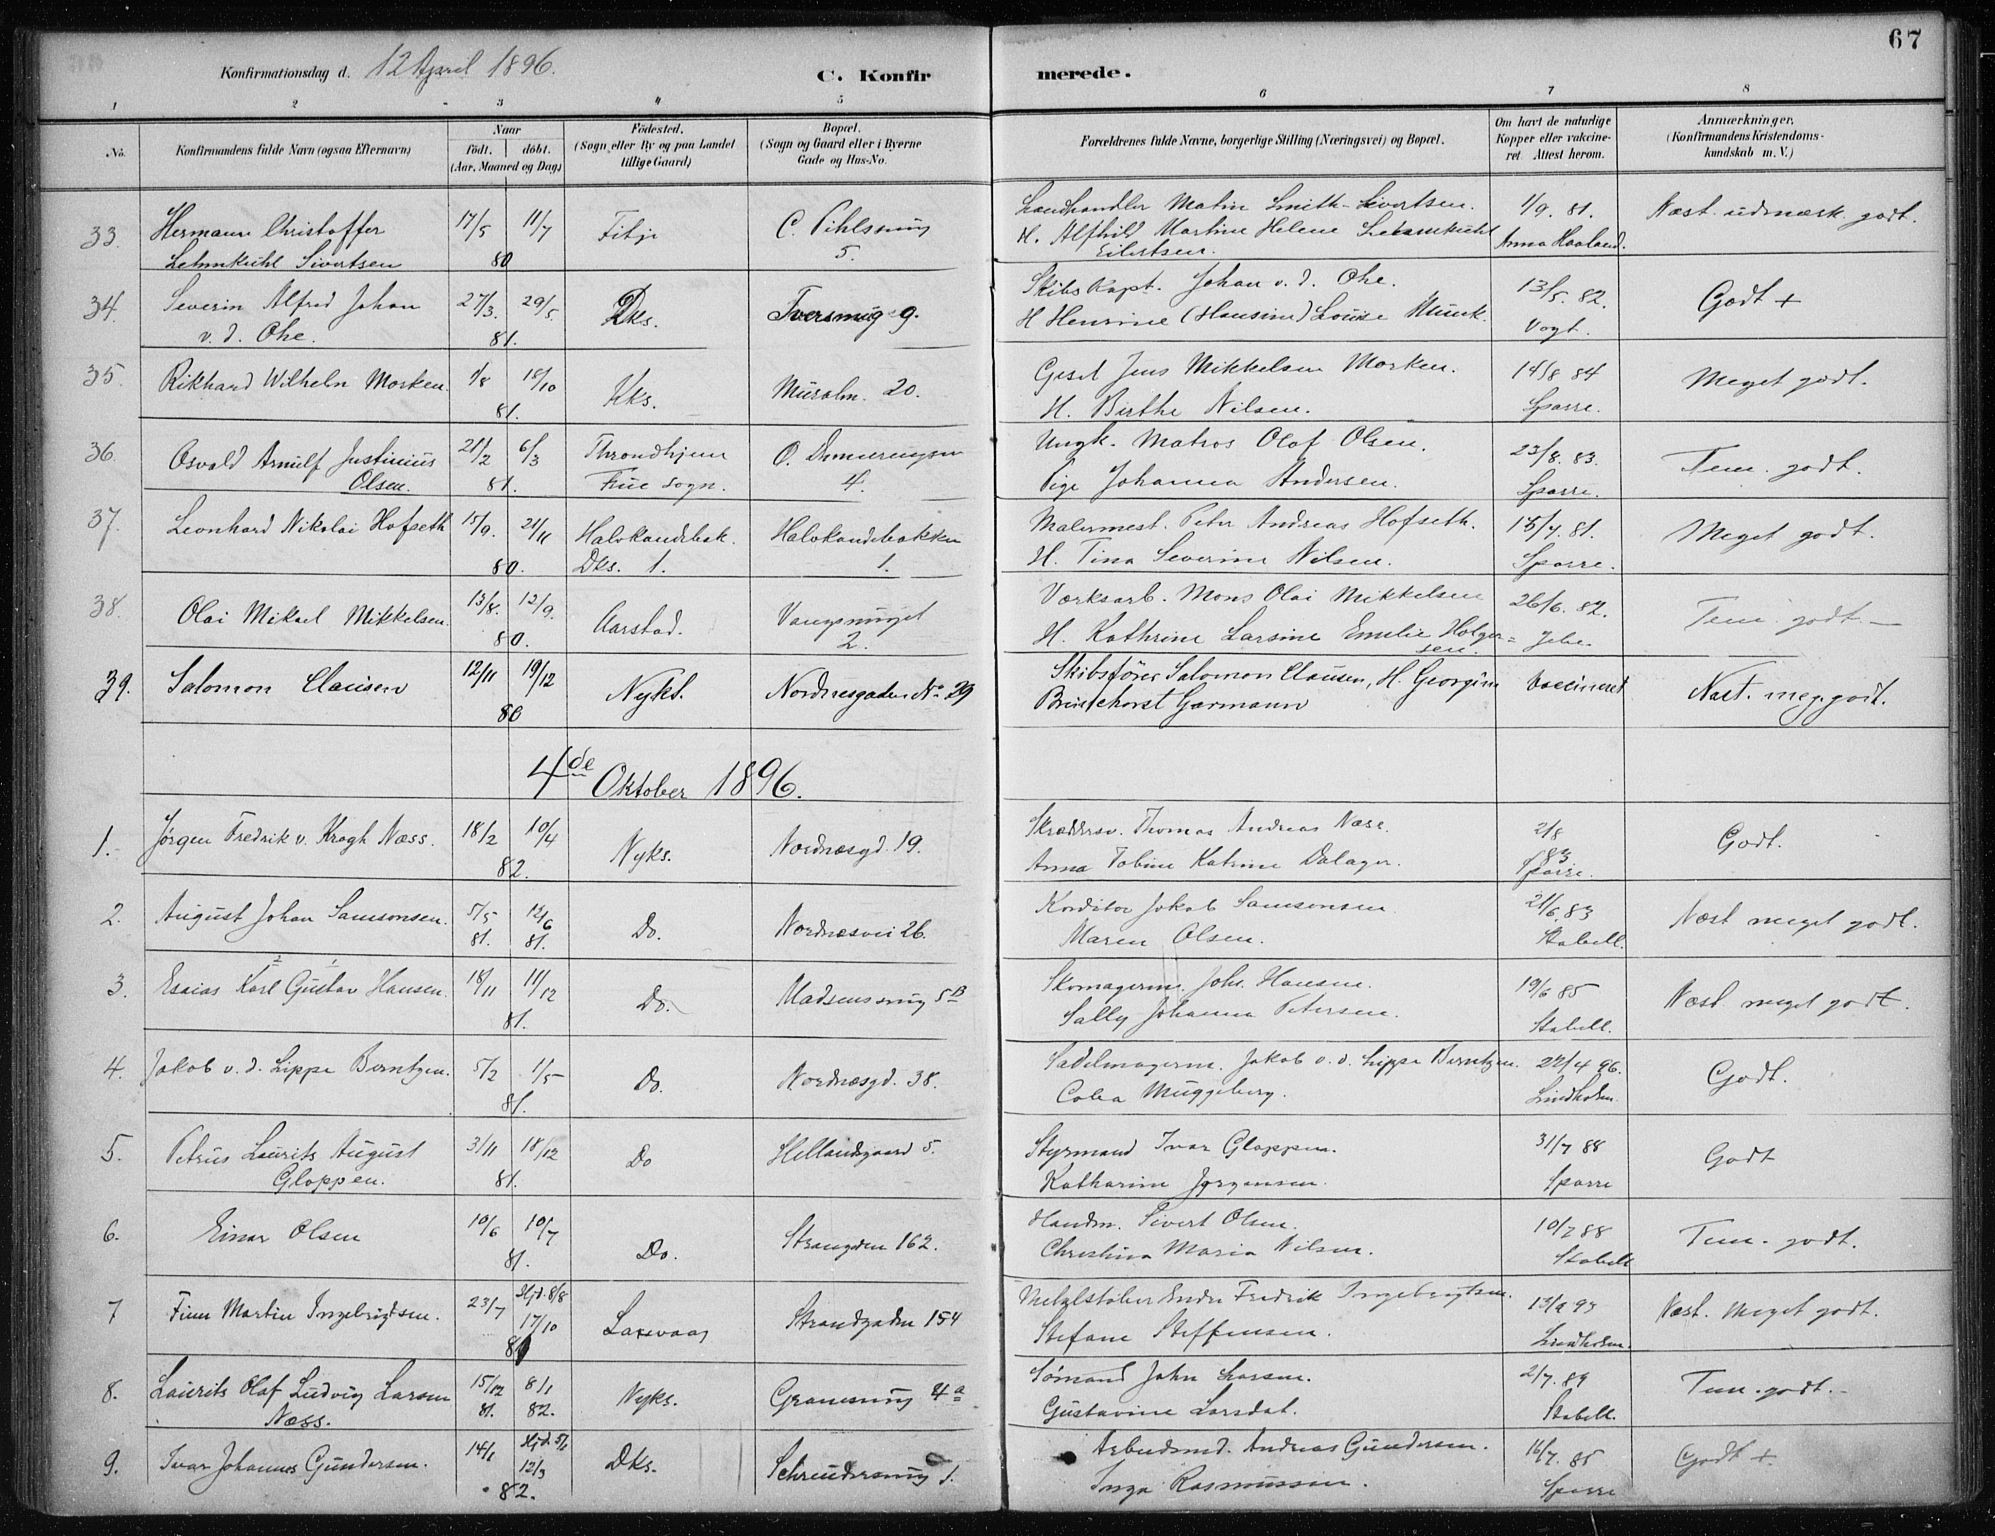 67
Konfirmationsdag d. 12 April 1896. C. Konfirmerede.
1 2 3 4 5 6 7 8
No. Konfirmandens fulde Navn (ogsaa Efternavn) Naar Födt. döbt. (Aar, Maaned og Dag) Födested. (Sogn eller By og paa Landet tillige Gaard) Bopæl. (Sogn og Gaard eller i Byerne Gade og Hus-No. Forældrenes fulde Navne, borgerlige Stilling (Næringsvei) og Bopæl. Om havt de naturlige Kopper eller vakcineret. Attest herom. Anmærkninger. (Konfirmandens Kristendomskundskab m. V.)
33. Hermann Christoffer 17/5 11/7 Fitje C. Pihlssmug Landhandler Martin Smith-Sivertsen. 1/9. 81. Næst. udmærk. godt.
Lehmkuhl Sivertsen 80 5. H. Alfhild Martine Helene Lehmkuhl Anna Haaland.
Eilertsen.
34. Severin Alfred Johan 27/3. 29/5. Dks. Tversmug 9. Skibs Kapt. Johan v. d. Ohe. 13/5. 82. Godt +
v. d. Ohe. 81. H Henrine (Hansine) Louise Munk. Vogt.
35. Rikhard Wilhelm Morken. 1/8 18/10 Kks. Muralm. 20. Gesel Jens Mikkelsen Morken. 14/8 84 Meget godt.
81. H. Birthe Nilsen. Sparre.
36. Osvald Arnulf Justinius 21/2 6/3 Throndhjem Ungk. Matros Olaf Olsen. 23/8. 83. Tem. godt.
Olsen. 81. Frue Sogn. 4. Pige Johanna Andersen. Sparre.
37. Leonhard Nikolai Hofseth 15/9. 21/11 Halvkandebak. Halvkandebakken Malermest. Peter Andreas Hofseth. 13/7. 81. Meget godt.
80. Dks. 1. 1. H. Tina Severine Nilsen. Sparre.
38. Olai Mikael Mikkelsen. 13/8. 12/9. Aarstad. Vangsmuget Værksarb. Mons Olai Mikkelsen 26/6. 82. Tem. godt.
80. 2. H. Kathrine Larsine Emilie Holger= Jebe
sen.
39. Salomon Clausen 12/11 19/12 Nykt. Nordnesgaden No 29 Skibsfører Salomon Clausen, H. Georgine Vaccineret Næst. meg. godt.
80 Brinchorst Garmann
4de Oktober 1896.
1. Jørgen Fredrik v. Krogh Næss. 18/2 10/4 Nyks. Nordnæsgd. 19. Skræddersv. Thomas Andreas Næss. 2/8 Godt.
82. Anna Tobine Katrine Dalager. 83 Sparre.
2. August Johan Samsonsen. 5/5 12/6 Do. Nordnæsvei 26. Konditor Jakob Samsonsen 21/6. 83 Næst meget godt.
81. 81. Maren Olsen. Stabell.
3. Esaias Karl Gustav Hansen. 18/11 11/12 Do. Madsenssmug 5 B Skomagerm. Johs. Hansen. 19/6 85 Næst meget godt.
81. Sally Johanna Petersen. Stabell.
4. Jakob v. d. Lippe Berntzen. 5/2 1/5 Do. Nordnæsgd. 38. Sadelmagerm. Jakob v. d. Lippe Berntzen. 22/4 96. Godt.
81. Muggeberg. Lindholm.
5. Petrus Laurits August 3/11 18/12 Do Hellandsgaard 5. Styrmand Ivar Gloppen. 31/7 88 Godt
Gloppen. 81. Katharine Jørgensen. Sparre
6. Einar Olsen 10/6 10/7 Do. Strangden 162. Handm. Sivert Olsen. 10/7 88 Tem. godt.
81. Christina Maria Nilsen. Stabell
7 Finn Martin Ingebrigtsen. 23/7 Hjd. 8/8 Laxevaag Strandgaden 154 Metalstøber Endre Fredrik Ingebrigtsen. 13/9 93 Næst. meget godt.
17/10 81 Stefane Steffensen. Lindholm.
8. Laurits Olaf Ludvig Larsen 15/12 8/1 Nyks. Granesmug 4 a Sømand John Larsen. 2/7. 89 Tem. godt.
Næss. 81. 82. Gustavine Larsdat. Stabell.
9. Ivar Johannes Gundersen. 14/1 Hjd. 5/2 Dks. Schreudersmug 1. Arbeidsmd. Andreas Gundersen. 16/7. 85 Godt +.
12/3 82. Inga Rasmussen. Sparre